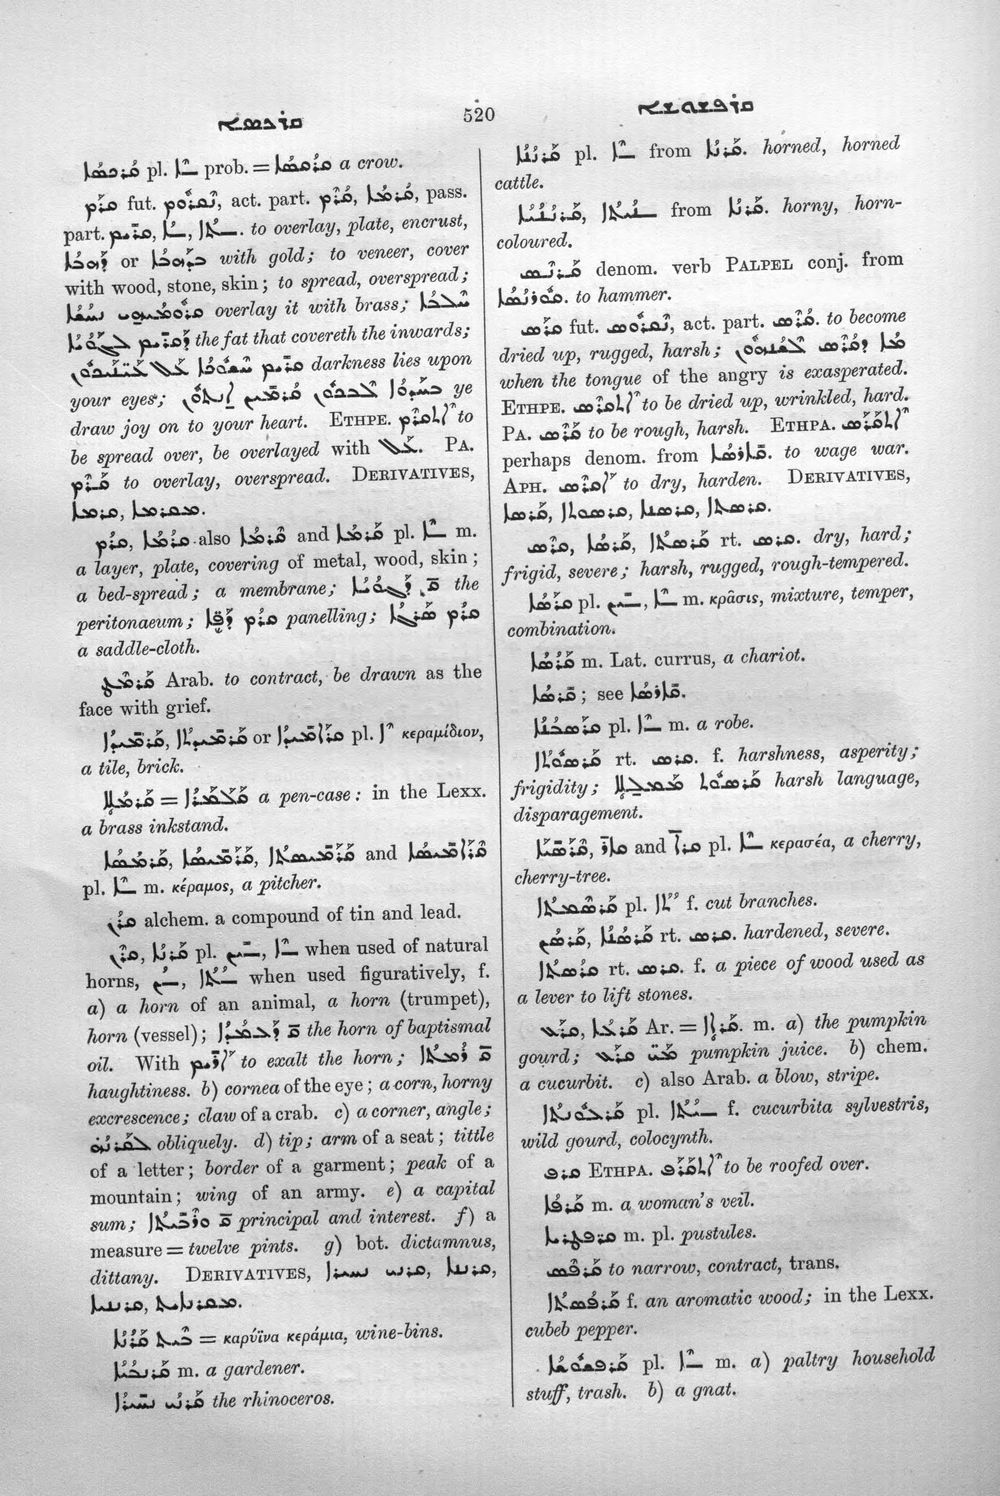 ܩܪܟܣܐ
520
ܩܪܦܫܘܫܐ
ܩܪܟܣܐ pl. ܐ prob. = ܩܪܩܣܐ a crow.
ܩܪܡ fut. ܢܩܪܘܡ, act. part. ܩܪܡ, ܩܪܡܐ, pass.
part. ܩܪܝܡ, ܐ, ܬܐ. to overlay, plate, encrust,
ܕܗܒܐ or ܒܕܗܒܐ with gold; to veneer, cover
with wood, stone, skin; to spread, overspread;
ܩܪܘܡܝܗܝ ܢܚܫܐ overlay it with brass;
the fat that covereth the inwards;
darkness lies upon
your eyes; ye
draw joy on to your heart. ETHPE. ܐܬܩܪܡ to
be spread over, be overlayed with ܥܠ. PA.
ܩܪܡ to overlay, overspread. DERIVATIVES,
ܩܪܡܐ, ܡܩܪܡܐ.
ܩܪܡ, ܩܪܡܐ also ܩܪܡܐ and ܩܪܡܐ pl. ܐ m.
a layer, plate, covering of metal, wood, skin;
a bed-spread; a membrane; ܩ ܕܓܘܝܐ the
peritonaeum; ܩܪܡ ܕܦܐ panelling; ܩܪܡ ܣܪܓܐ
a saddle-cloth.
ܩܪܡܛ Arab. to contract, be drawn as the
face with grief.
ܩܪܡܝܕܐ, ܩܪܡܝܕܬܐ or ܩܪܐܡܝܕܐ pl. ܐ κεραμίδιον,
a tile, brick.
ܩܪܡܠܐ = ܩܠܡܪܐ a pen-case: in the Lexx.
a brass inkstand.
ܩܪܡܣܐ, ܩܪܡܝܣܐ, ܩܪܡܝܣܬܐ and ܩܪܐܡܝܣܐ
pl. ܐ m. κέραμος, a pitcher.
ܩܪܢ alchem. a compound of tin and lead.
ܩܪܢ, ܩܪܢܐ pl. ܝܢ, ܐ when used of natural
horns, ܢ, ܬܐ when used figuratively, f.
a) a horn of an animal, a horn (trumpet),
horn (vessel); ܩ ܕܥܡܕܐ the horn of baptismal
oil. With ܐܪܝܡ to exalt the horn; ܩ ܪܡܬܐ
haughtiness. b) cornea of the eye; a corn, horny
excrescence; claw of a crab. c) a corner, angle;
obliquely. d) tip; arm of a seat; tittle
of a letter; border of a garment; peak of a
mountain; wing of an army. e) a capital
sum; ܩ ܘܪܒܝܬܐ principal and interest. f) a
measure = twelve pints. g) bot. dictamnus,
dittany. DERIVATIVES,
ܡܩܪܢܘܬܐ.
ܒܝܬ ܩܪܢܐ = καρύϊνα κεράμια, wine-bins.
ܩܪܢܒܝܐ m. a gardener.
the rhinoceros.
ܩܪܢܢܐ pl. ܐ from ܩܪܢܐ. horned, horned
cattle.
ܩܪܢܢܝܐ, ܢܝܬܐ from ܩܪܢܐ. horny, horn-
coloured.
ܩܪܢܣ denom. verb PALPEL conj. from
ܩܘܪܢܣܐ. to hammer.
ܩܪܣ fut. ܢܩܪܘܣ, act. part. ܩܪܣ. to become
dried up, rugged, harsh;
when the tongue of the angry is exasperated.
ETHPE. ܐܬܩܪܣ to be dried up, wrinkled, hard.
PA. ܩܪܣ to be rough, harsh. ETHPA. ܐܬܩܪܣ
perhaps denom. from ܩܐܪܣܐ. to wage war.
APH. ܐܩܪܣ to dry, harden. DERIVATIVES,
ܩܪܣܐ, ܩܪܣܘܬܐ, ܩܪܣܢܐ, ܩܪܣܬܐ.
ܩܪܣ, ܩܪܣܐ, ܩܪܣܬܐ rt. ܩܪܣ. dry, hard;
frigid, severe; harsh, rugged, rough-tempered.
ܩܪܣܐ pl. ܝܢ, ܐ m. κρᾶσις, mixture, temper,
combination.
ܩܪܣܐ m. Lat. currus, a chariot.
ܩܪܣܐ; see ܩܐܪܣܐ.
ܩܪܣܒܢܐ pl. ܐ m. a robe.
ܩܪܣܘܬܐ rt. ܩܪܣ. f. harshness, asperity;
frigidity; ܩܪܣܘܬ ܡܡܠܠܐ harsh language,
disparagement.
ܩܪܣܝܐ, and pl. ܐ κερασέα, a cherry,
cherry-tree.
ܩܪܣܡܬܐ pl. f. cut branches.
ܩܪܣܢ, ܩܪܣܢܐ rt. ܩܪܣ. hardened, severe.
ܩܪܣܬܐ rt. ܩܪܣ. f. a piece of wood used as
a lever to lift stones.
ܩܪܥ, ܩܪܥܐ Ar. = ܩܪܐܐ. m. a) the pumpkin
gourd; ܡܝ ܩܪܥ pumpkin juice. b) chem.
a cucurbit. c) also Arab. a blow, stripe.
ܩܪܥܘܢܝܬܐ pl. ܝܬܐ f. cucurbita sylvestris,
wild gourd, colocynth.
ܩܪܦ ETHPA. ܐܬܩܪܦ to be roofed over.
ܩܪܦܐ m. a woman's veil.
ܩܪܦܛܝܐ m. pl. pustules.
ܩܪܦܣ to narrow, contract, trans.
ܩܪܦܣܬܐ f. an aromatic wood; in the Lexx.
cubeb pepper.
ܩܪܦܥܘܫܐ pl. ܐ m. a) paltry household
stuff, trash. b) a gnat.